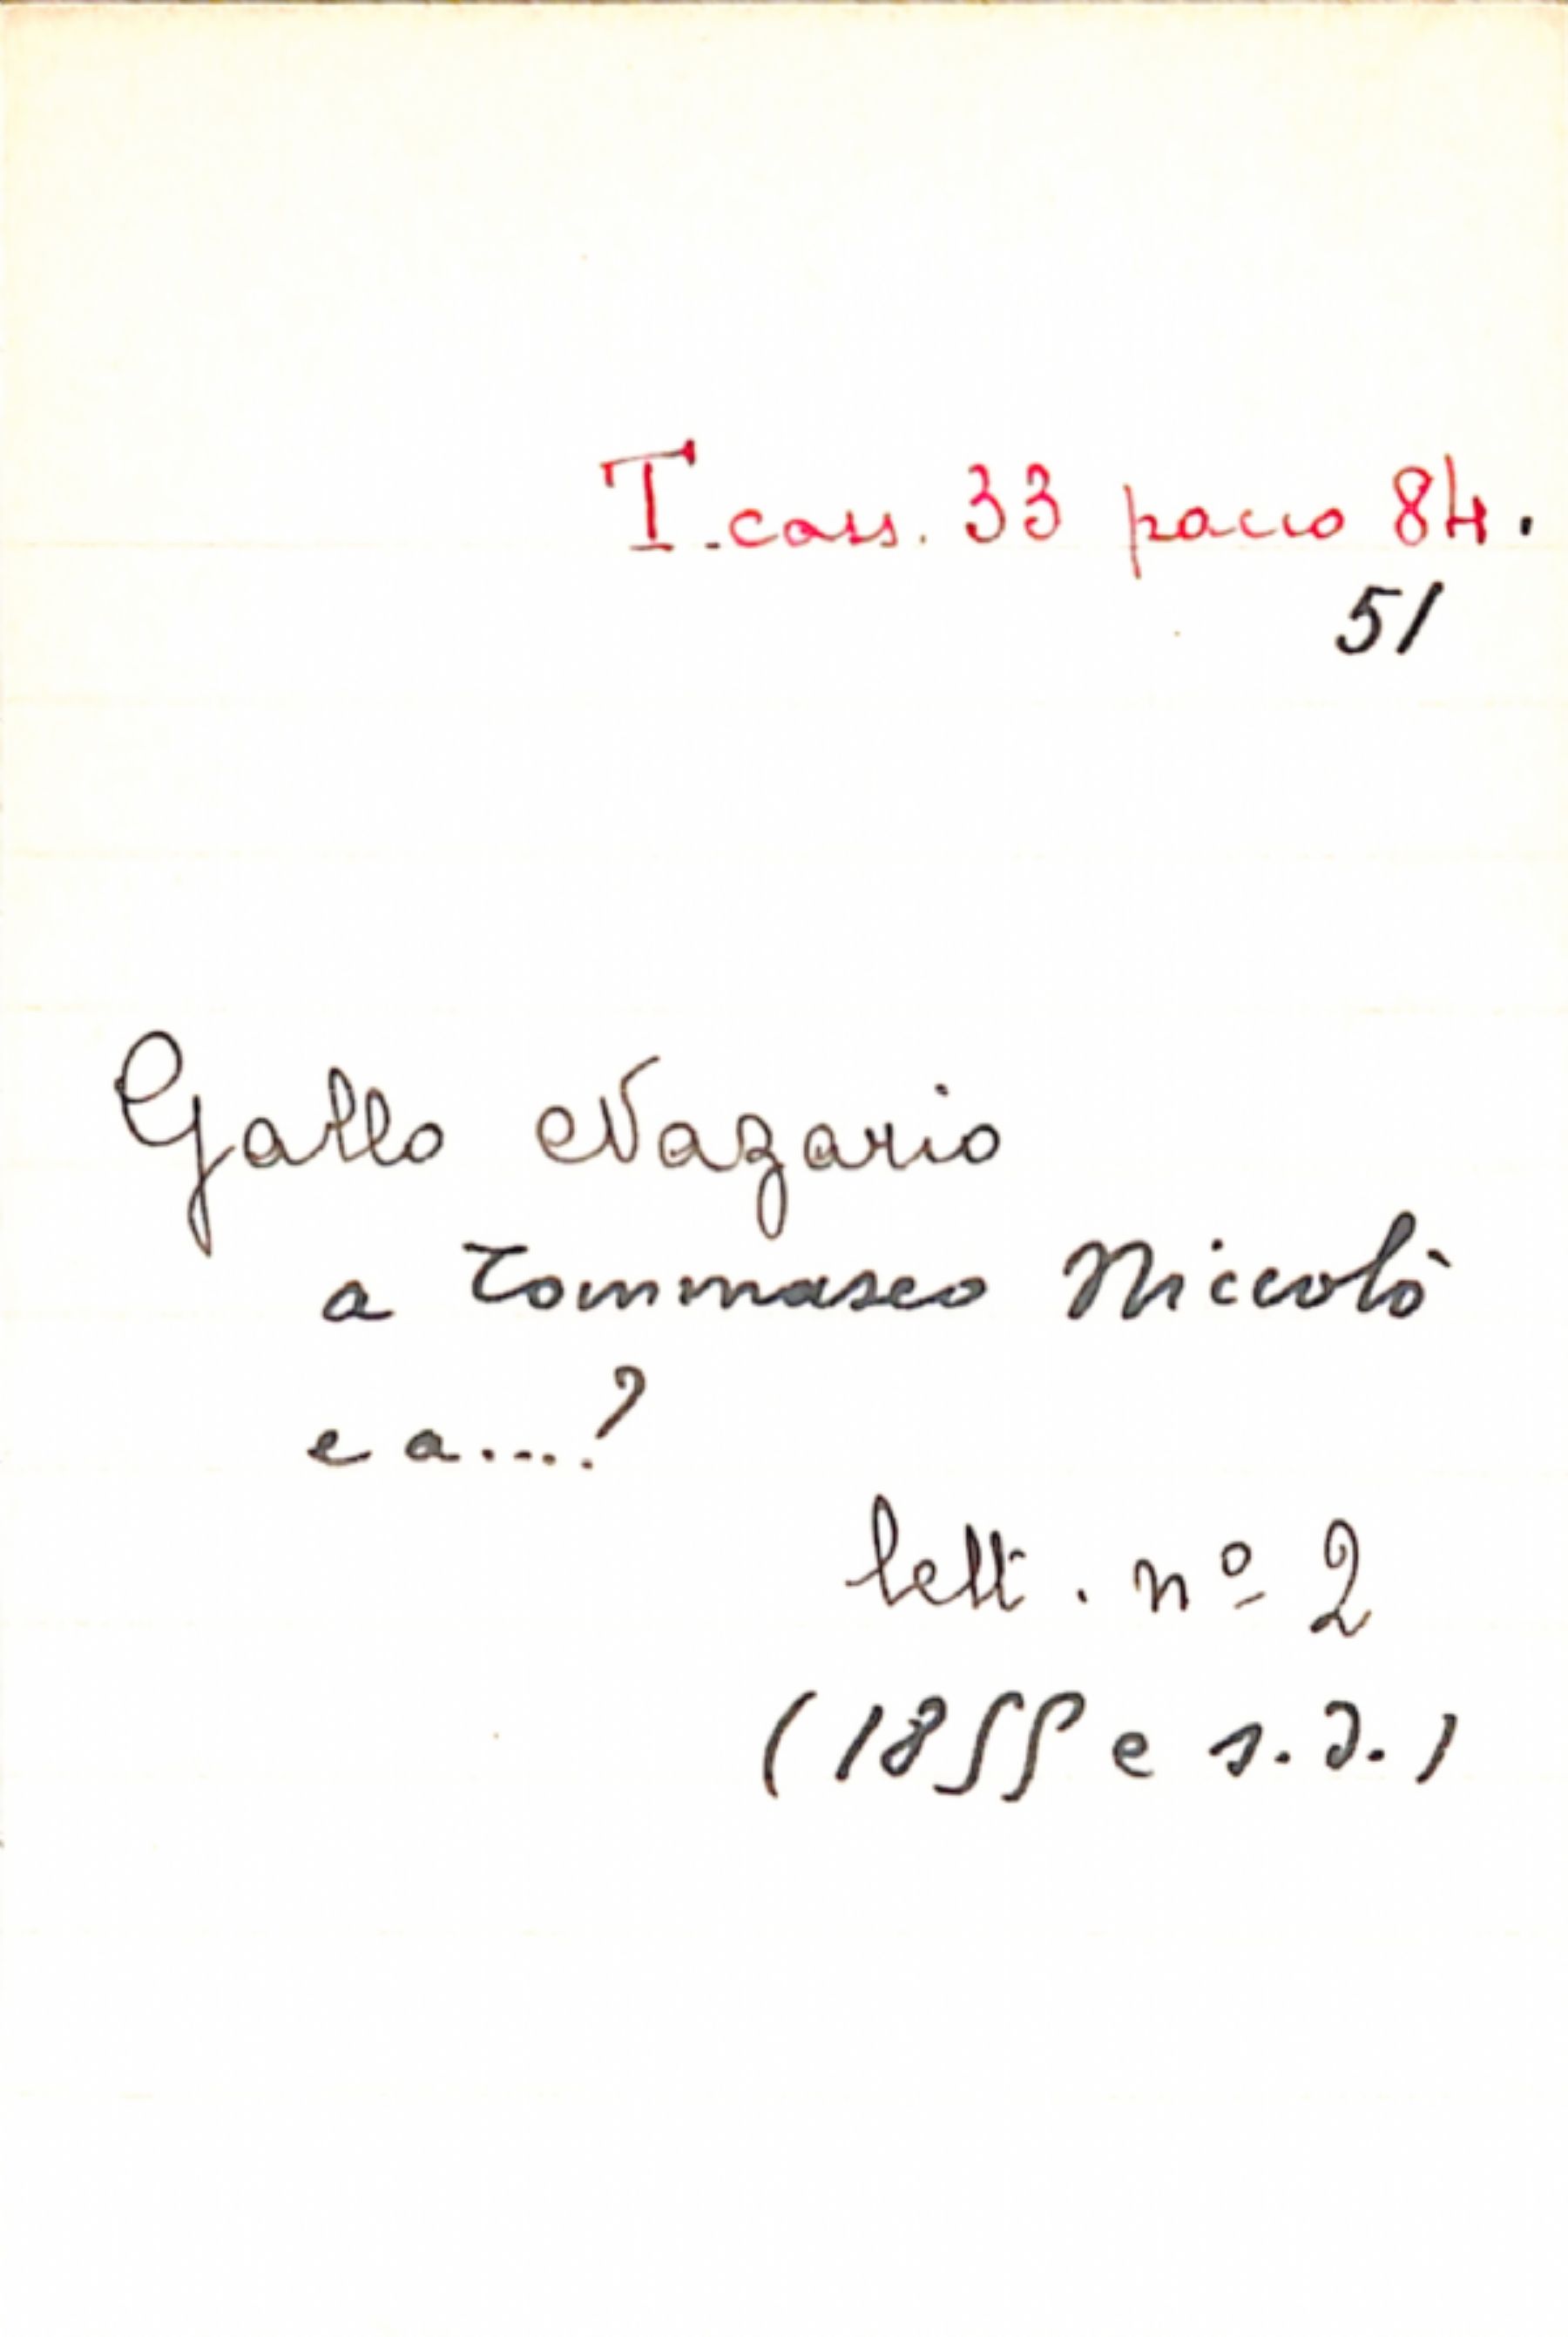 T. cass. 33 pacco 84.
51
Gallo Nazario
a Tommaseo Niccolò
e a....?
lett. nº 2
(1855 e s.d.)